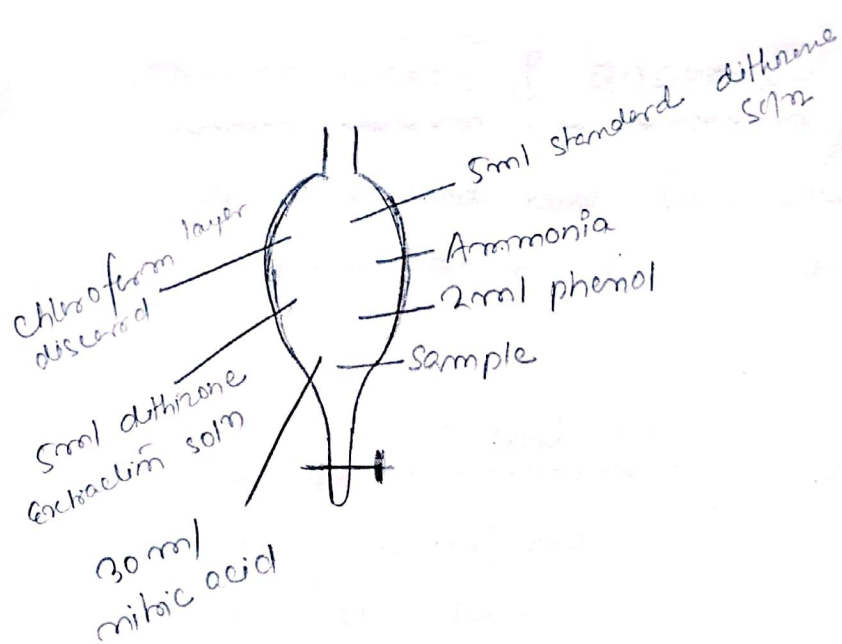 5ml standard dithizone
soln
Ammonia
2ml phenol
Sample
chloroform layer
discard
5ml dithizone
extraction soln
30 ml
nitric acid